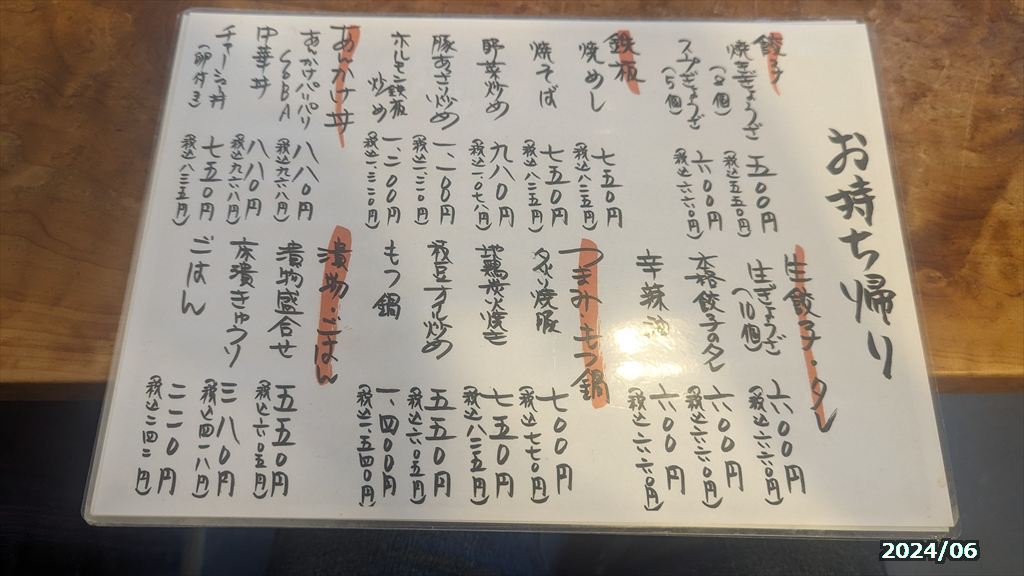 お持ち帰り
餃子
焼ぎょうざ
(8個)
五〇〇円
(税込五五〇円)
スープぎょうざ
(5個)
六〇〇円
(税込六六〇円)
鉄板
焼めし
七五〇円
(税込八二五円)
焼そば
七五〇円
(税込八二五円)
野菜炒め
九八〇円
(税込一、〇七八円)
豚あさり炒め
(税込一、二一〇円)
ホルモン鉄板
炒め
一、二〇〇円
(税込一、三二〇円)
あんかけ丼
あんかけパーパリ
八八〇円
(税込九六八円)
中華丼
八八〇円
(税込九六八円)
チャーシュー丼
(卵付き)
七五〇円
(税込八二五円)
生餃子・タレ
生ぎょうざ
(10個)
六〇〇円
(税込六六〇円)
本格餃子のタレ
六〇〇円
(税込六六〇円)
辛辣油
六〇〇円
(税込六六〇円)
つまみ・もつ鍋
タタキ焼豚
七〇〇円
(税込七七〇円)
地鶏炭焼き
七五〇円
(税込八二五円)
枝豆ガーリック炒め
五五〇円
(税込六〇五円)
もつ鍋
一、四〇〇円
(税込一、五四〇円)
漬物・ごはん
漬物盛合せ
五五〇円
(税込六〇五円)
床漬きゅうり
三八〇円
(税込四一八円)
ごはん
二二〇円
(税込二四二円)
2024/06